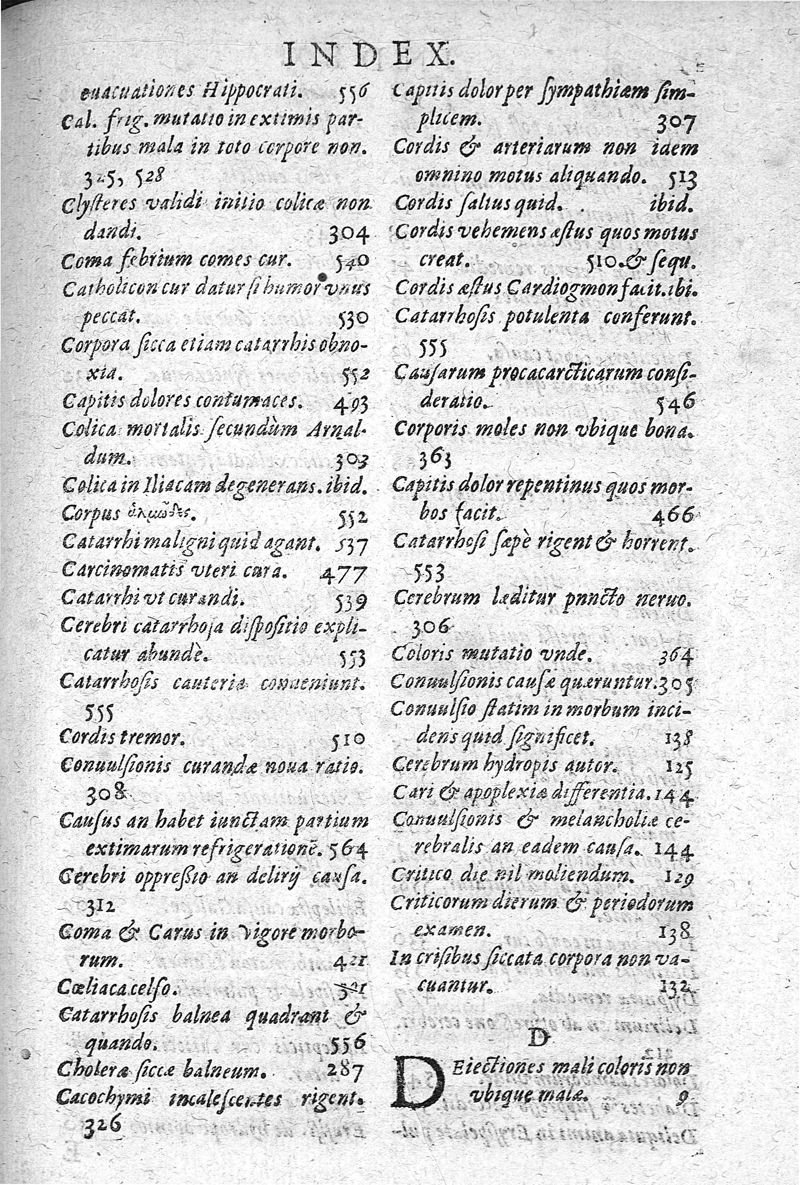 INDEX.
euacuationes Hippocrati. 556
Cal. frig. mutatio in extimis par-
tibus mala in toto corpore non.
325, 528
Clysteres validi initio colicæ non
dandi. 304
Coma febrium comes cur. 540
Catholicon cur datur si humor vnus
peccat. 530
Corpora sicca etiam catarrhis obno-
xia. 552
Capitis dolores contumaces. 493
Colica mortalis secundùm Arnal-
dum. 303
Colica in Iliacam degenerans. ibid.
Corpus ἁλμῶδες. 552
Catarrhi maligni quid agant. 537
Carcinomatis vteri cura. 477
Catarrhi vt curandi. 539
Cerebri catarrhosa dispositio expli-
catur abundè. 553
Catarrhosis cauteria conueniunt.
555
Cordis tremor. 510
Conuulsionis curandæ noua ratio.
308
Causus an habet iunctam partium
extimarum refrigerationẽ. 564
Cerebri oppressio an delirij causa.
312
Coma & Carus in vigore morbo-
rum. 421
Cœliaca celso. 321
Catarrhosis balnea quadrant &
quando. 556
Choleræ siccæ balneum. 287
Cacochymi incalescentes rigent.
326
Capitis dolor per sympathiæm sim-
plicem. 307
Cordis & arteriarum non idem
omnino motus aliquando. 513
Cordis saltus quid. ibid.
Cordis vehemens æstus quos motus
creat. 510. & sequ.
Cordis æstus Cardiogmon facit. ibi.
Catarrhosis potulenta conferunt.
555
Causarum procacarcticarum consi-
deratio. 546
Corporis moles non vbique bona.
363
Capitis dolor repentinus quos mor-
bos facit. 466
Catarrhosi sæpè rigent & horrent.
553
Cerebrum læditur pnncto neruo.
306
Coloris mutatio vnde. 364
Conuulsionis causæ quæruntur. 305
Conuulsio statim in morbum inci-
dens quid significet. 138
Cerebrum hydropis autor. 125
Cari & apoplexiæ differentia. 144
Conuulsionis & melancholiæ ce-
rebralis an eadem causa. 144
Critico die nil moliendum. 129
Criticorum dierum & periodorum
examen. 138
In crisibus siccata corpora non va-
cuantur. 132
D
DEiectiones mali coloris non
vbique malæ. 9.